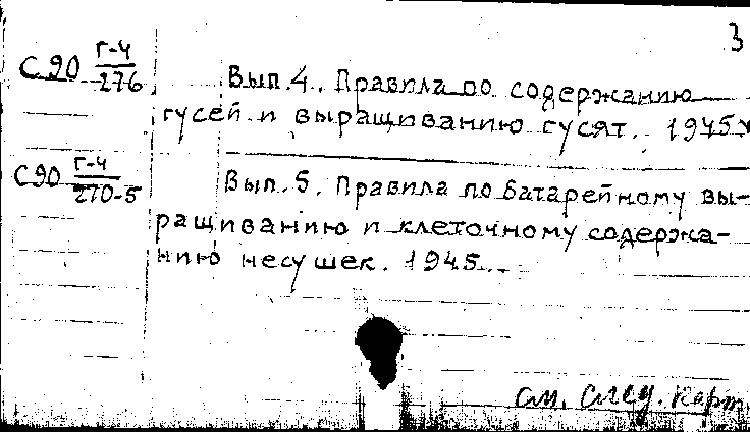 3
С90 Г-4/276 Вып. 4. Правила по содержанию
гусей и выращиванию гусят. 1945.
С90 Г-4/270-5 Вып. 5. Правила по батарейному вы-
ращиванию и клеточному содержа-
нию несушек. 1945.
см. след. карт.